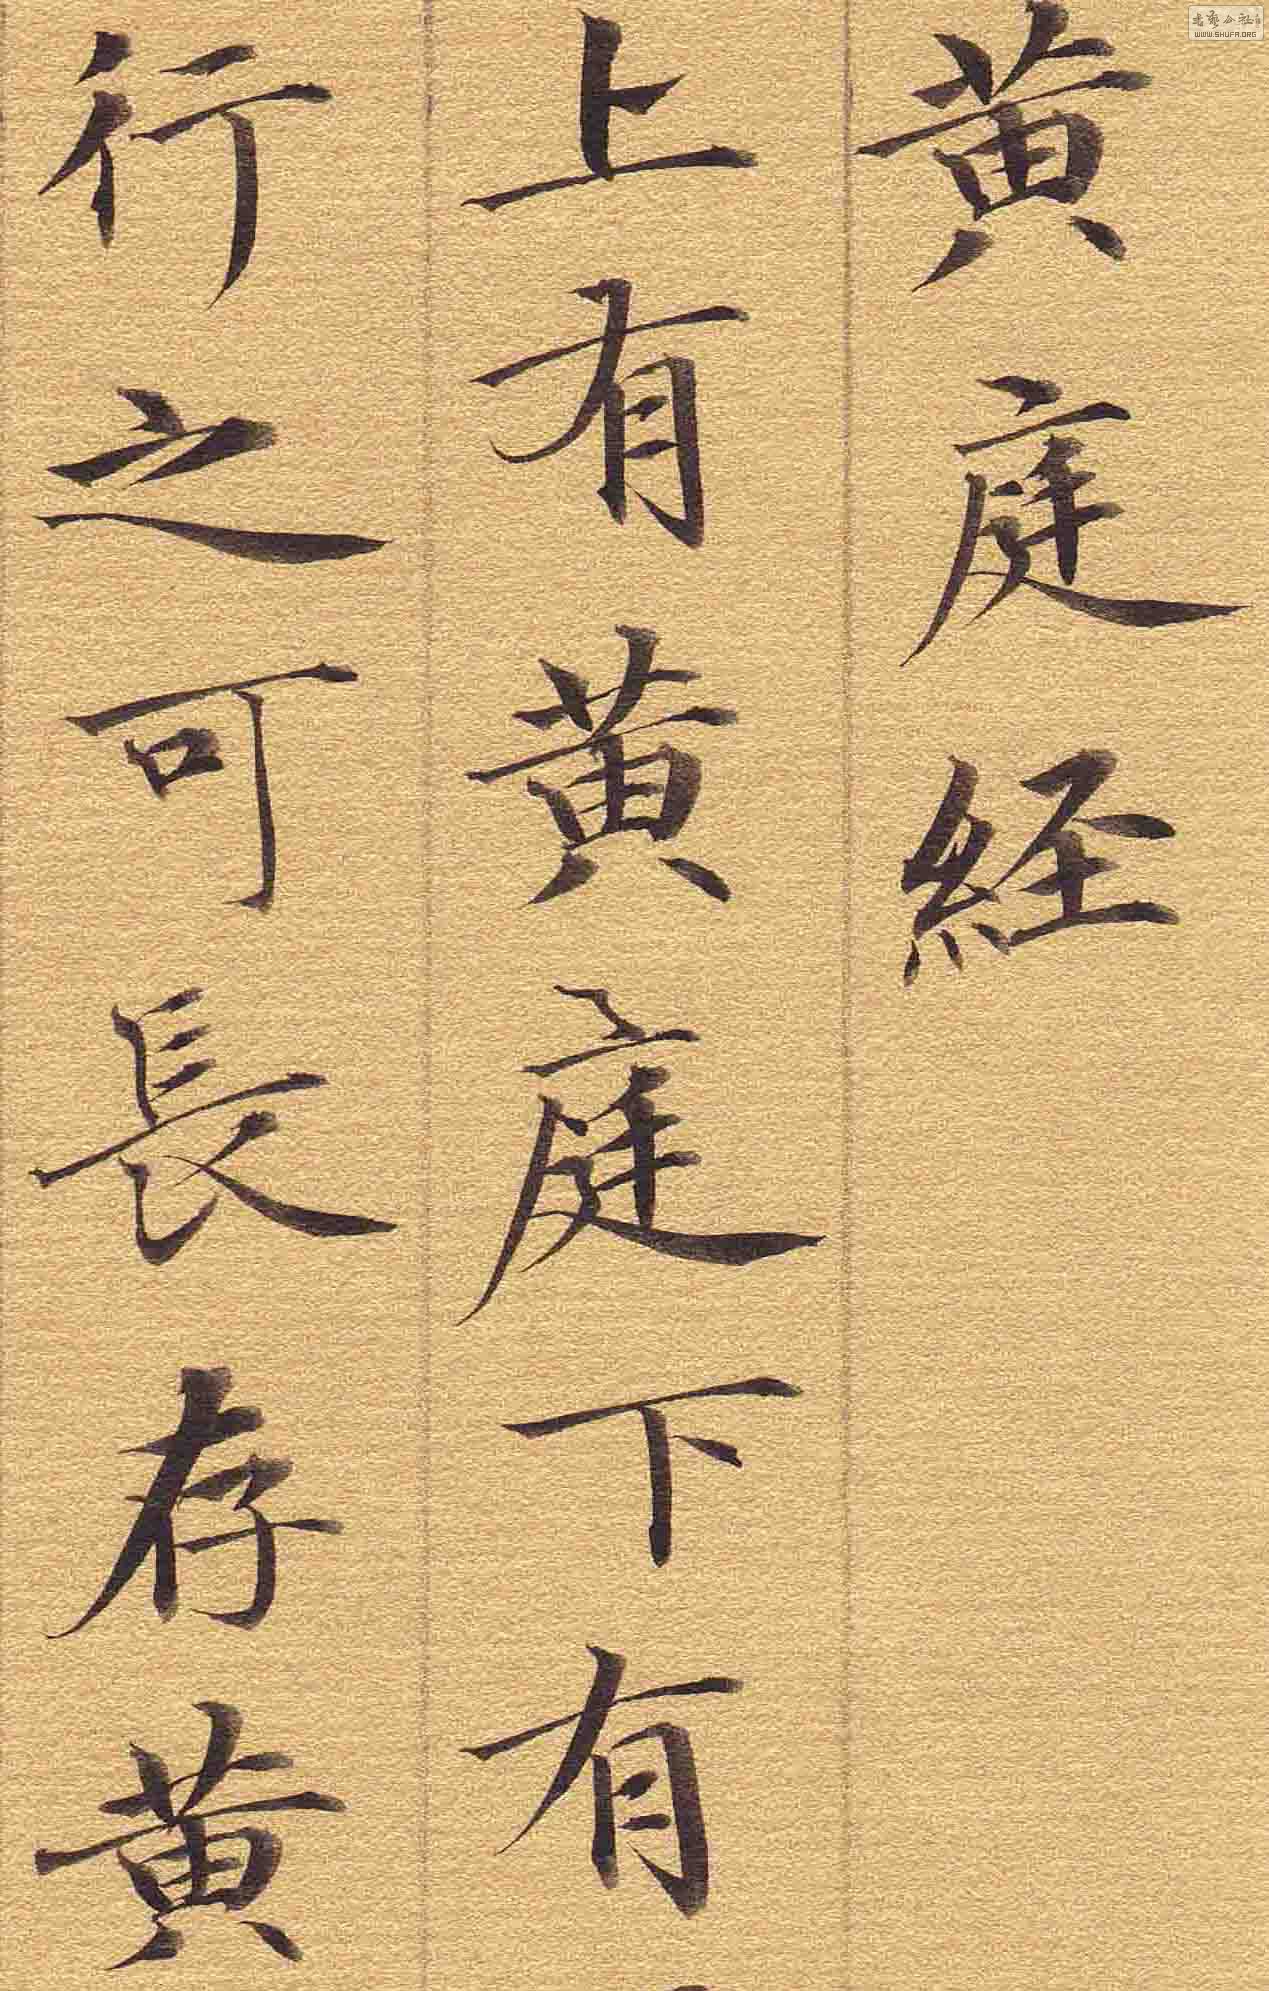 黄庭経
上有黄庭下有
行之可長存黄
WWW.SHUFA.ORG